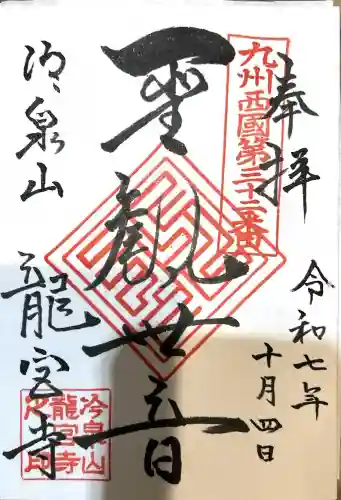 奉拝
九州西國第三十二番
令和七年
十月四日
聖観世音
冷泉山
龍宮寺
冷泉山
龍宮寺